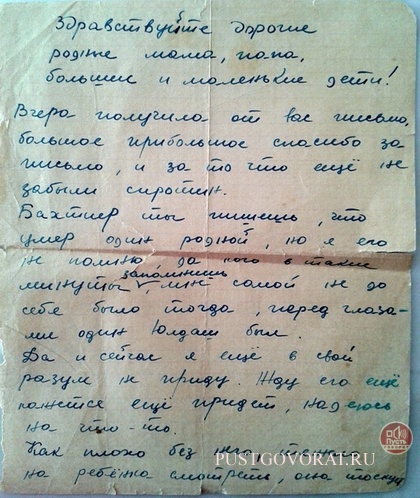 Здравствуйте дорогие
родные мама, папа,
большие и маленькие дети!
Вчера получила от вас письмо,
большое прибольшое спасибо за
письмо, и за то что ещё не
забыли сиротин.
Бахтиер ты пишешь, что
умер один родной, но я его
не помню да кого в такие
минуты запомнишь, мне самой не до
себя было тогда, перед глаза-
ми один Юлдаш был.
Да и сейчас я ещё в свой
разум не приду. Жду его ещё
кажется ещё придет, надеюсь
на что-то.
Как плохо без него, тяжко
на ребёнка смотреть, она
PUSTGOVORAT.RU
Пусть
говорят